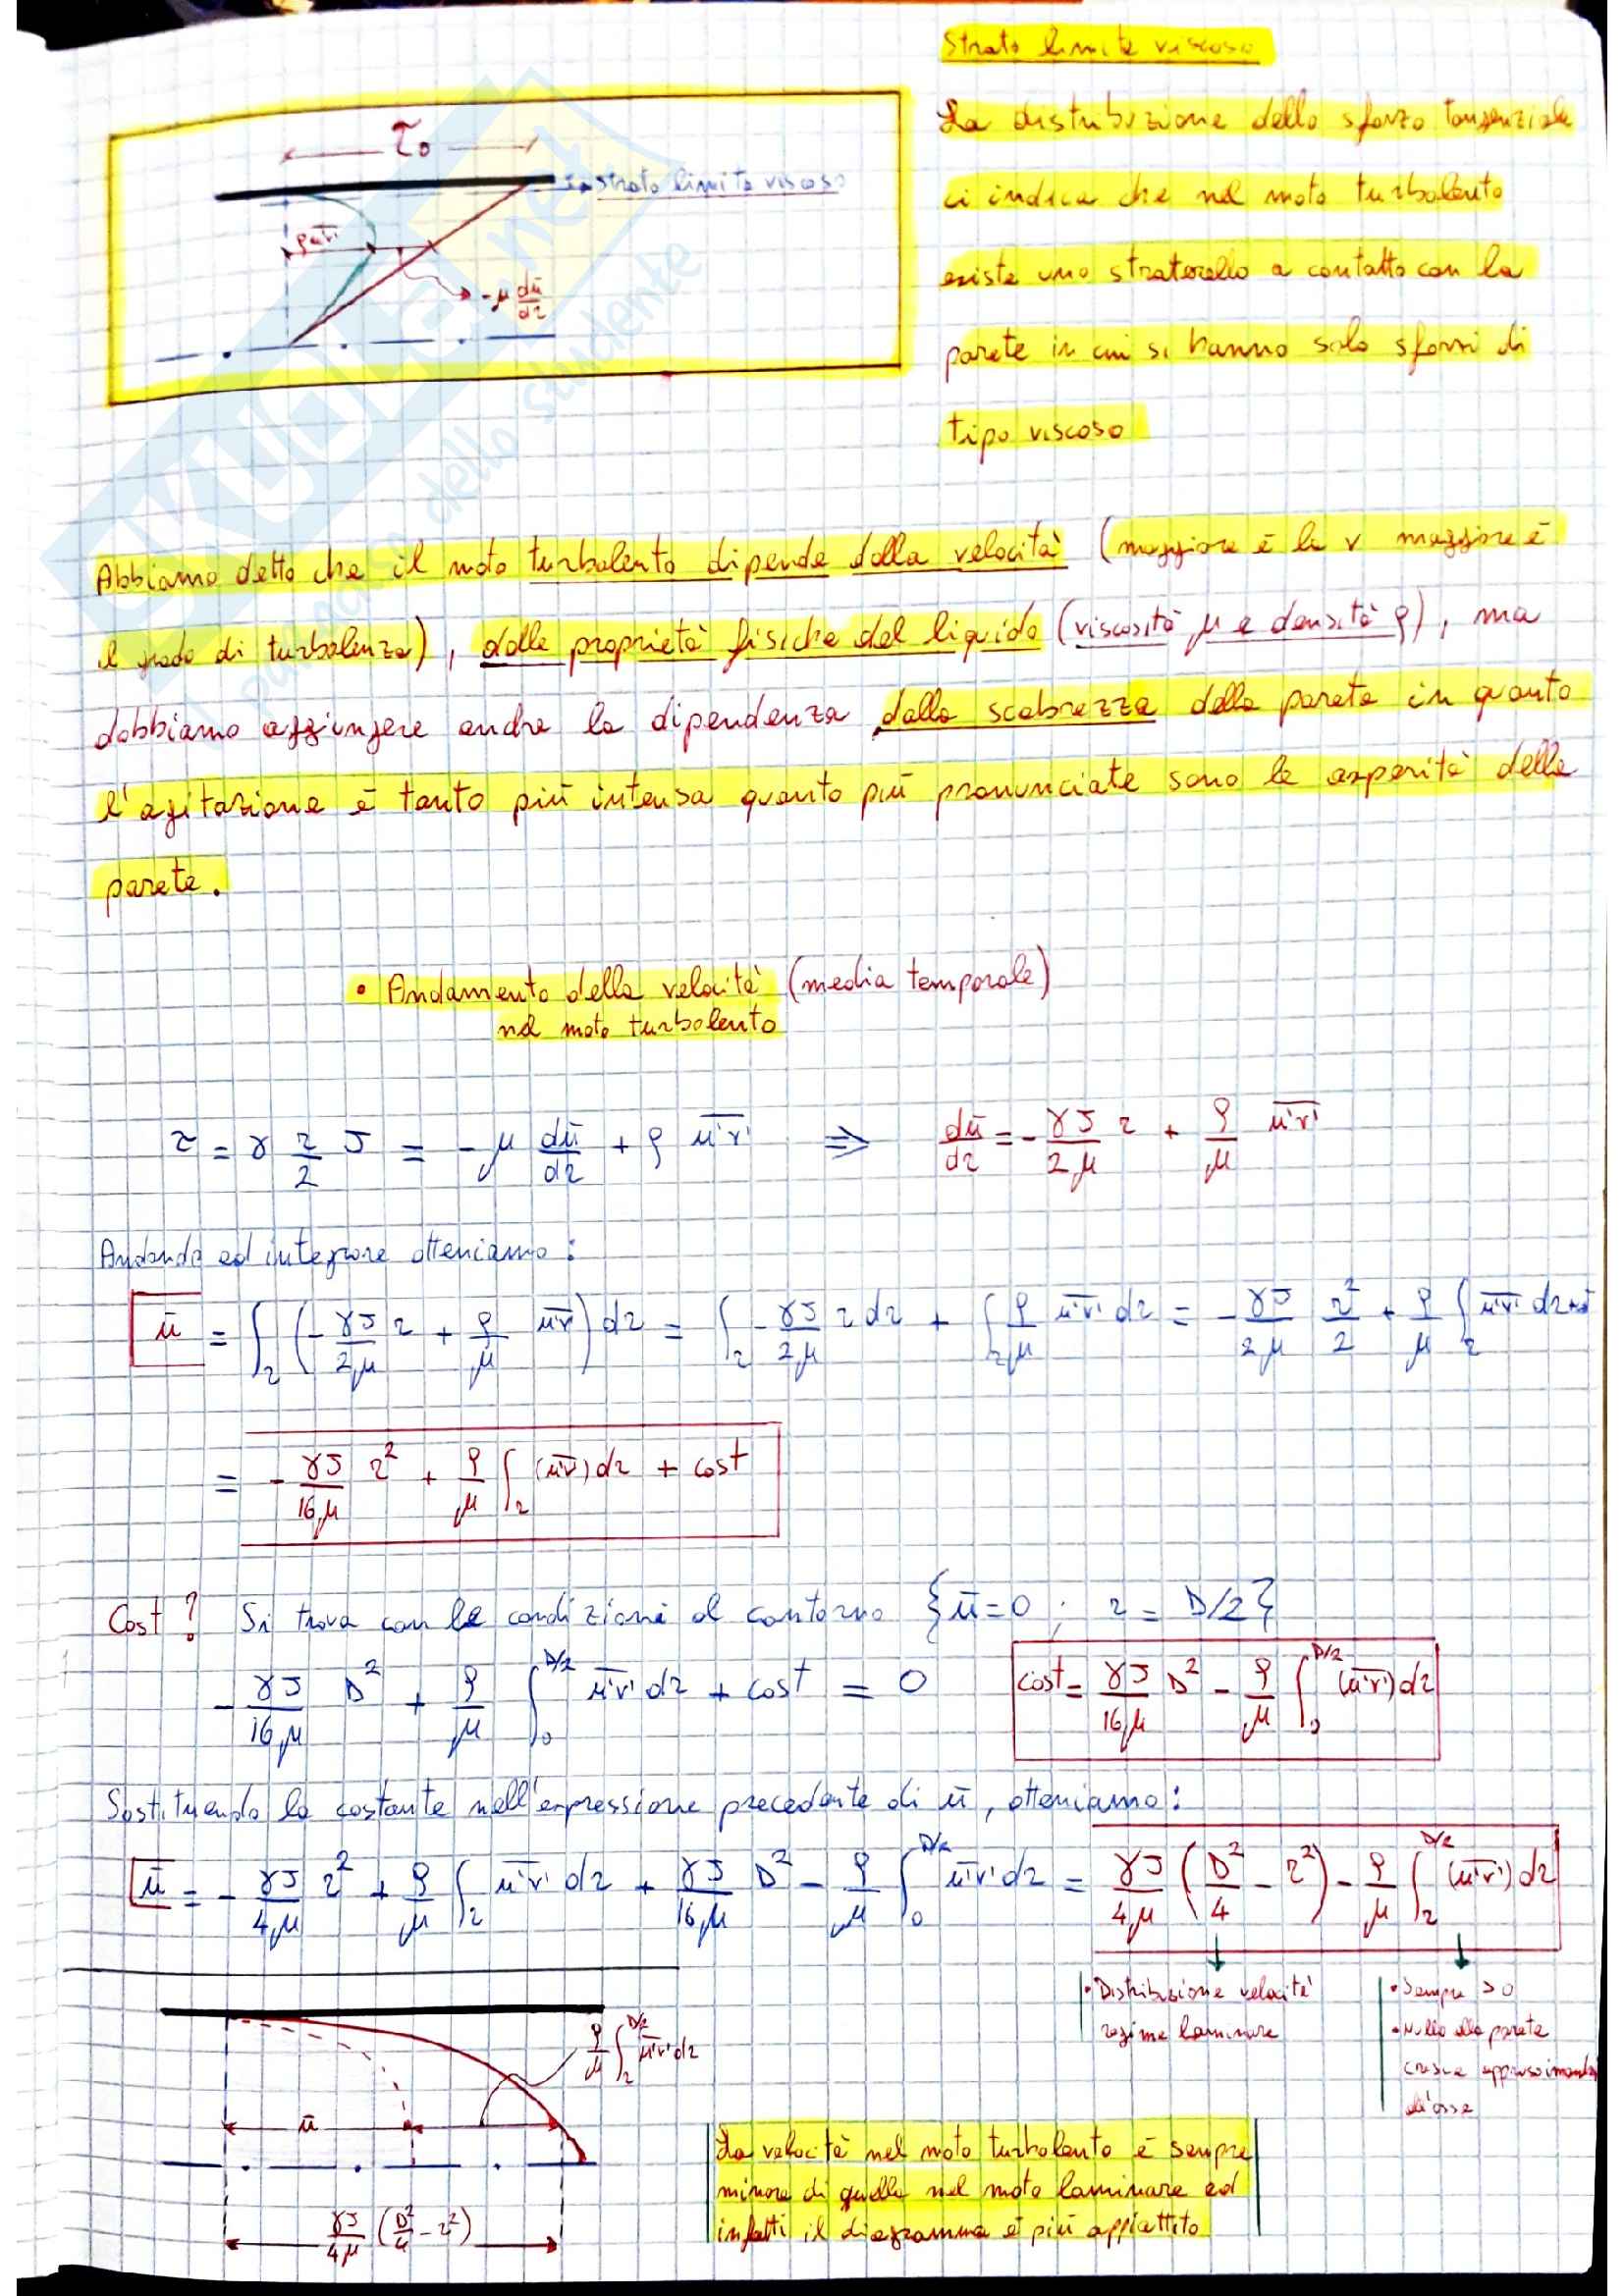 Strato limite viscoso
La distribuzione dello sforzo tangenziale
ci indica che nel moto turbolento
esiste uno straterello a contatto con la
parete in cui si hanno solo sforzi di
tipo viscoso
τ₀
strato limite viscoso
ρ u'v'
-μ dū/dr
SKUOLA.net
paradiso dello studente
Abbiamo detto che il moto turbolento dipende dalla velocità (maggiore è la v maggiore è
il grado di turbolenza), dalle proprietà fisiche del liquido (viscosità μ e densità ρ), ma
dobbiamo aggiungere anche la dipendenza dalla scabrezza della parete in quanto
l'agitazione è tanto più intensa quanto più pronunciate sono le asperità della
parete.
• Andamento della velocità (media temporale)
nel moto turbolento
τ = γ r/2 J = -μ dū/dr + ρ u'v' ⇒ dū/dr = - γJ/2μ r + ρ/μ u'v'
Andando ad integrare otteniamo:
ū = ∫r (- γJ/2μ r + ρ/μ u'v') dr = ∫r - γJ/2μ r dr + ∫r ρ/μ u'v' dr = - γJ/2μ r²/2 + ρ/μ ∫r u'v' dr
= - γJ/16μ r² + ρ/μ ∫r (u'v') dr + cost
Cost? Si trova con le condizioni al contorno {ū=0 ; r = D/2}
- γJ/16μ D² + ρ/μ ∫₀^D/2 u'v' dr + cost = 0 cost = γJ/16μ D² - ρ/μ ∫₀^D/2 (u'v') dr
Sostituendo la costante nell'espressione precedente di ū, otteniamo:
ū = - γJ/4μ r² + ρ/μ ∫r u'v' dr + γJ/16μ D² - ρ/μ ∫₀^D/2 u'v' dr = γJ/4μ (D²/4 - r²) - ρ/μ ∫r^D/2 (u'v') dr
• Distribuzione velocità
regime laminare
• Sempre > 0
• Nullo alla parete
cresce approssimandosi
all'asse
ρ/μ ∫r^D/2 u'v' dr
ū
γJ/4μ (D²/4 - r²)
La velocità nel moto turbolento è sempre
minore di quella nel moto laminare ed
infatti il diagramma è più appiattito